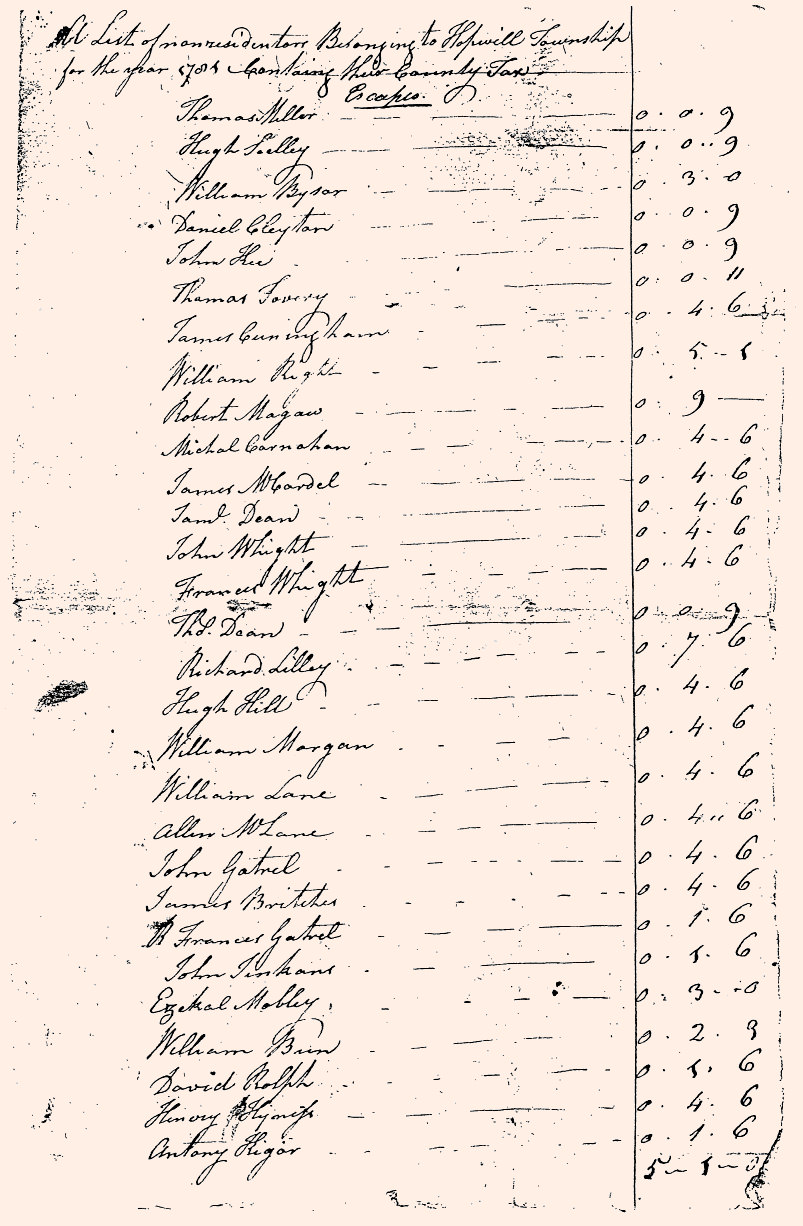 A List of nonresidentors Belonging to Hopwill Township
for the year 1788 Containg their County Tax
Escapes.
Thomas Miller 0. 0. 9
Hugh Seelley 0. 0.. 9
William Bysor 0. 3. 0
Daniel Cleyton 0. 0. 9
John Hu 0. 0. 9
Thomas Fovery 0. 0. 11
James Cuningham 0. 4. 6
William Right 0. 5.. 1
Robert Magaw 0. 9
Michal Carnahan 0. 4.. 6
James McCardel 0. 4. 6
Saml. Dean 0. 4. 6
John Whight 0. 4. 6
Frances Whight 0. 4. 6
Thos. Dean 0. 0. 9
Richard Lilley 0. 7. 6
Hugh Hill 0. 4. 6
William Morgan 0. 4. 6
William Lane 0. 4. 6
Allen McLane 0. 4.. 6
John Gatrel 0. 4. 6
James Britches 0. 4. 6
Frances Gatrel 0. 1. 6
John Jinkans 0. 1. 6
Ezekal Mobley 0. 3.. 0
William Bun 0. 2. 3
David Rolph 0. 1. 6
Henory 0. 4. 6
Antony Higar 0. 1. 6
5 1 0